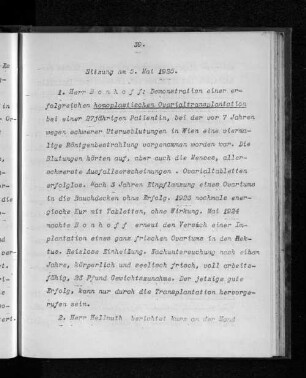 39.
Sitzung am 5. Mai 1925.
1. Herr Bonhoff: Demonstration einer er-
folgreichen homoplastischen Ovarialtransplantation
bei einer 27jährigen Patientin, bei der vor 7 Jahren
wegen schwerer Uterusblutungen in Wien eine viermalige
Röntgenbestrahlung vorgenommen worden war. Die
Blutungen hörten auf, aber auch die Menses, aller-
schwerste Ausfallserscheinungen. Ovarialtabletten
erfolglos. Nach 3 Jahren Einpflanzung eines Ovariums
in die Bauchdecken ohne Erfolg. nochmals ener-
gische Kur mit Tabletten, ohne Wirkung. Mai 1924
machte Bonhoff erneut den Versuch einer Im-
plantation eines ganz frischen Ovariums in den Rek-
tus. Reizlose Einheilung. Nachuntersuchung nach einem
Jahre, körperlich und seelisch frisch, voll arbeits-
fähig, Pfund Gewichtszunahme. Der jetzige gute
Erfolg, kann nur durch die Transplantation hervorge-
rufen sein.
2. Herr Hellmuth berichtet kurz an der Hand